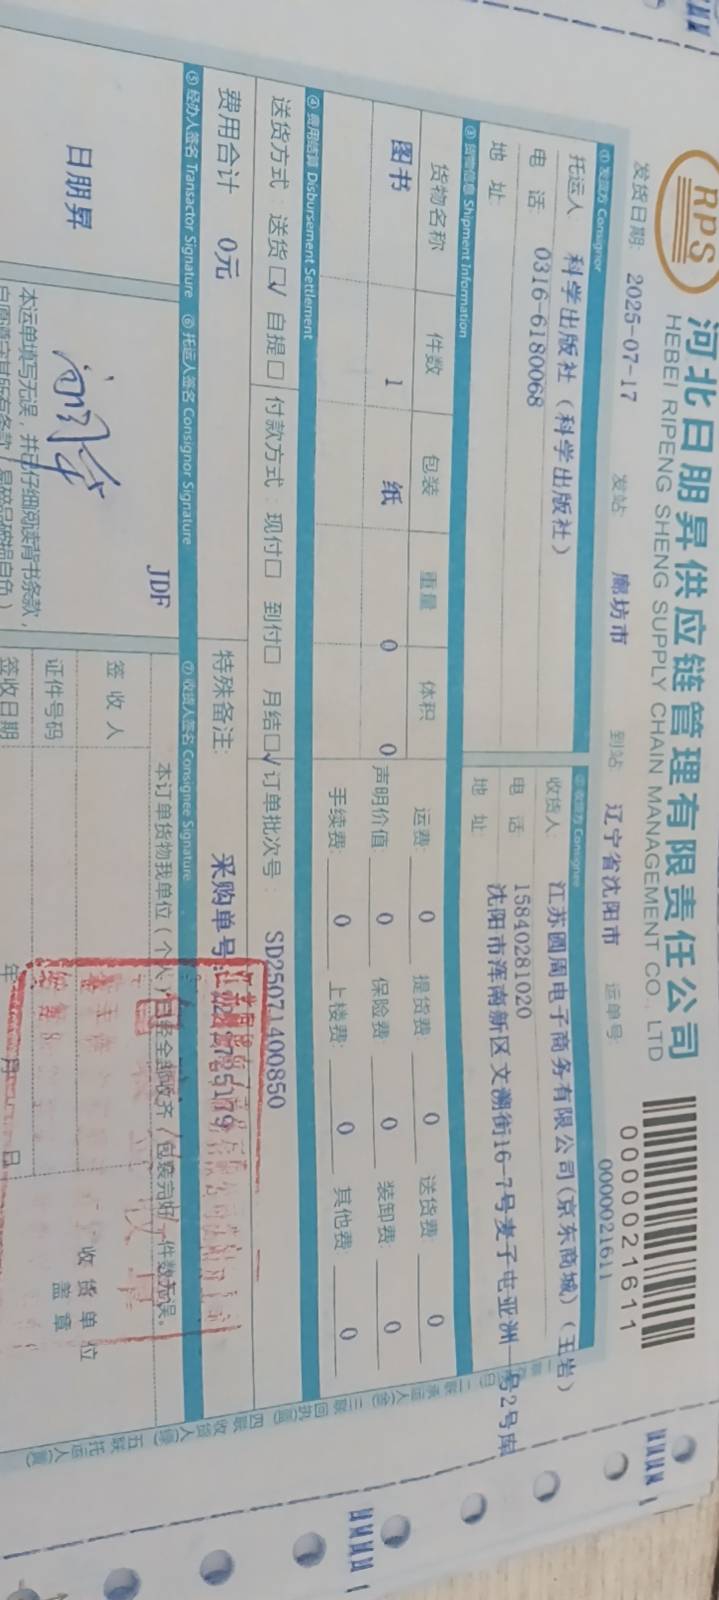 RPS
河北日朋昇供应链管理有限责任公司
HEBEI RIPENG SHENG SUPPLY CHAIN MANAGEMENT CO., LTD
0000021611
发货日期: 2025-07-17 发站: 廊坊市 到站: 辽宁省沈阳市 运单号: 0000021611
① 发货方 Consignor
托运人: 科学出版社（科学出版社）
电 话: 0316-6180068
地 址:
② 收货方 Consignee
收货人: 江苏圆周电子商务有限公司(京东商城)（王岩）
电 话: 15840281020
地 址: 沈阳市浑南新区文溯街16-7号麦子屯亚洲一号2号库
③ 货物信息 Shipment Information
货物名称 件数 包装 重量 体积
图书 1 纸 0 0
运费: 0 提货费: 0 送货费: 0
声明价值: 0 保险费: 0 装卸费: 0
手续费: 0 上楼费: 0 其他费: 0
④ 费用结算 Disbursement Settlement
送货方式: 送货□√ 自提□ 付款方式: 现付□ 到付□ 月结□√ 订单批次号: SD25071400850
费用合计 0元 特殊备注: 采购单号:
⑤ 经办人签名 Transactor Signature ⑥ 托运人签名 Consignor Signature ⑦ 收货人签名 Consignee Signature
日朋昇
JDF
本运单填写无误，并已仔细阅读背书条款，
本订单货物我单位（个人）已安全部收齐，包装完好，件数无误。
签 收 人
证件号码
签收日期 年 月 日
收货单位
盖 章